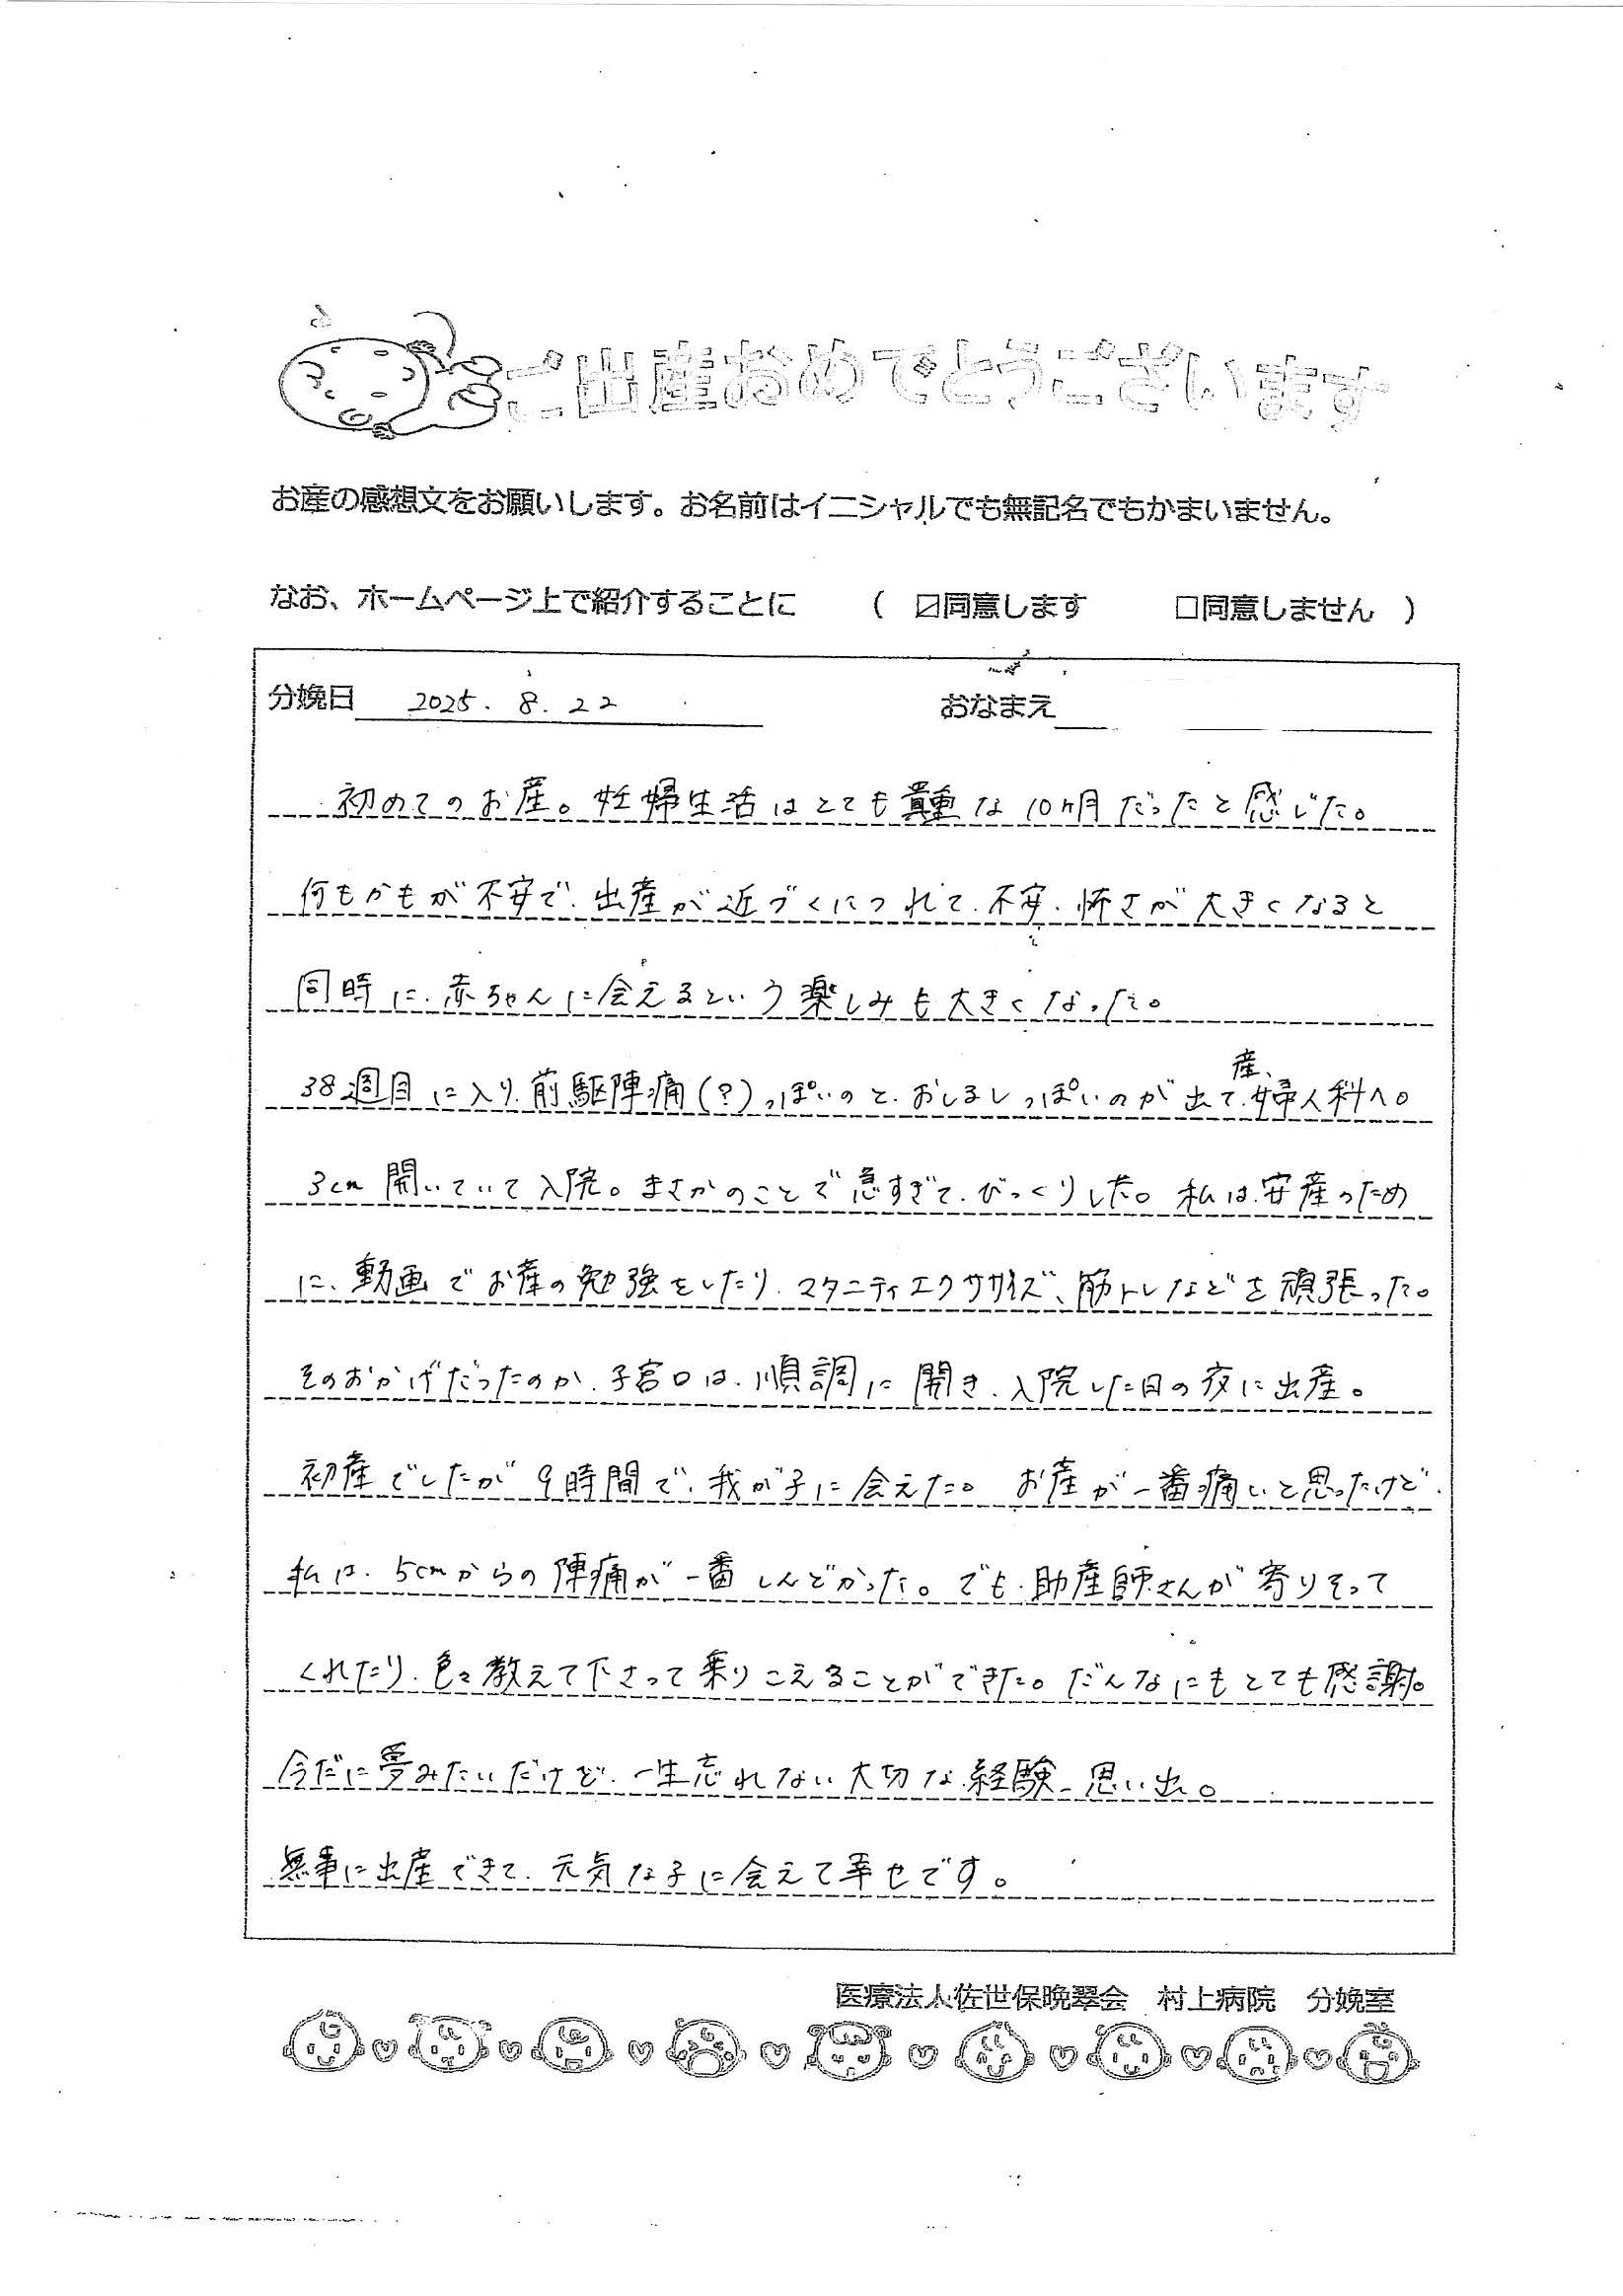 ご出産おめでとうございます
お産の感想文をお願いします。お名前はイニシャルでも無記名でもかまいません。
なお、ホームページ上で紹介することに （ ☑同意します □同意しません ）
分娩日 2025.8.22 おなまえ
初めてのお産。妊婦生活はとても貴重な10ヶ月だったと感じた。
何もかもが不安で、出産が近づくにつれて、不安、怖さが大きくなると
同時に、赤ちゃんに会えるという楽しみも大きくなった。
38週目に入り、前駆陣痛(?)っぽいのと、おしるしっぽいのが出て、産婦人科へ。
3cm開いていて入院。まさかのことで急すぎて、びっくりした。私は、安産のため
に、動画でお産の勉強をしたり、マタニティエクササイズ、筋トレなどを頑張った。
そのおかげだったのか、子宮口は、順調に開き、入院した日の夜に出産。
初産でしたが9時間で、我が子に会えた。お産が一番痛いと思ったけど、
私は、5cmからの陣痛が一番しんどかった。でも、助産師さんが寄りそって
くれたり、色々教えて下さって乗りこえることができた。だんなにもとても感謝。
今だに夢みたいだけど、一生忘れない大切な経験、思い出。
無事に出産できて、元気な子に会えて幸せです。
医療法人佐世保晩翠会 村上病院 分娩室